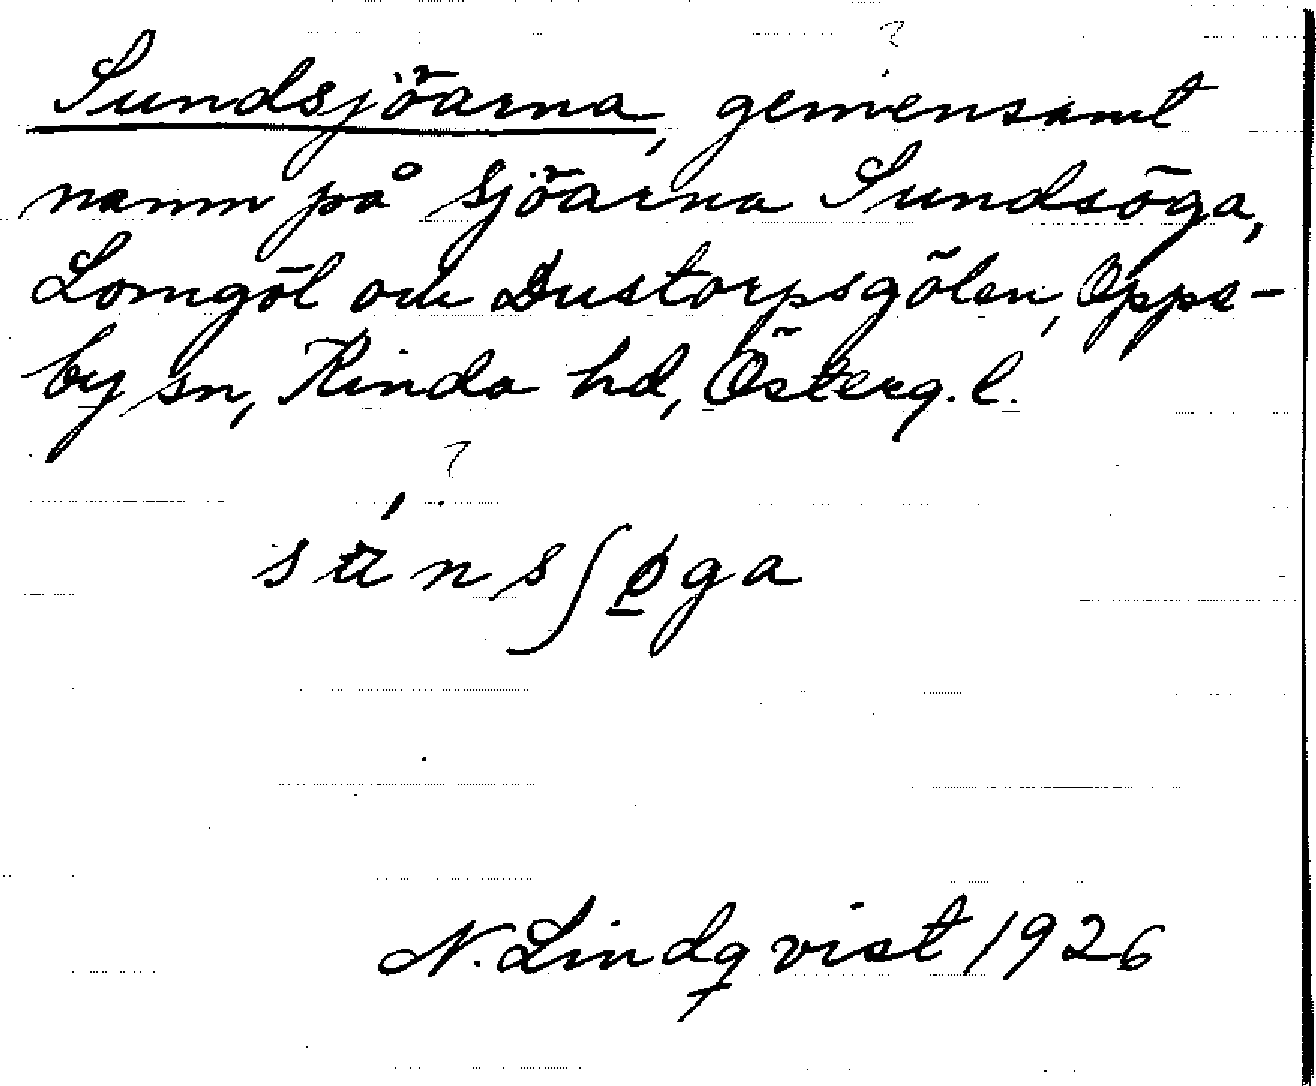 ?
Sundsjöarna, gemensamt
namn på sjöarna Sundsöga,
Lomgöl och Dustorpsgölen, Opps-
by sn, Kinda hd, Österg. l.
?
N. Lindqvist 1926